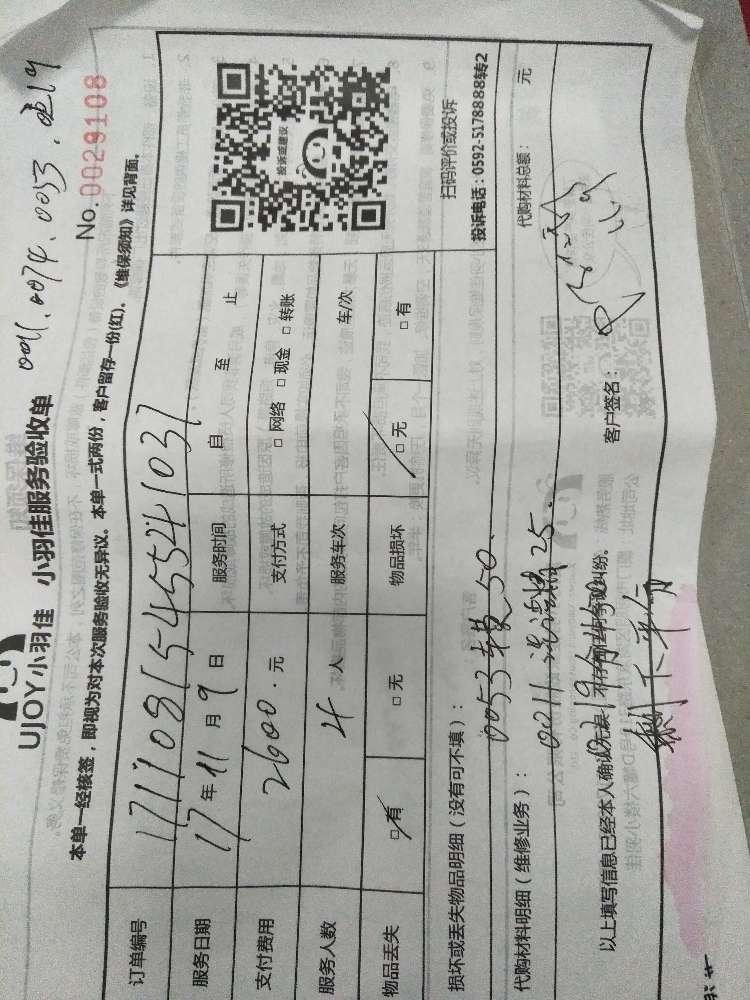 0011.0074.0053.
UJOY小羽佳 小羽佳服务验收单
No.0029108
本单一经核签，即视为对本次服务验收无异议。本单一式两份，客户留存一份(红)。《维保须知》详见背面。
订单编号 171108154554103
服务日期 17年11月9日 服务时间 自 至 止
支付费用 2600.元 支付方式 □网络 □现金 □转账
服务人数 4人 服务车次 车/次
物品丢失 □有 □无 物品损坏 □无 □有
投诉或建议
扫码评价或投诉
投诉电话：0592-5178888转2
损坏或丢失物品明细（没有可不填）：
0053 50.
代购材料明细（维修业务）： 代购材料总额： 元
0011 25.
以上填写信息已经本人确认无误，不存在任何争议纠纷。
客户签名：